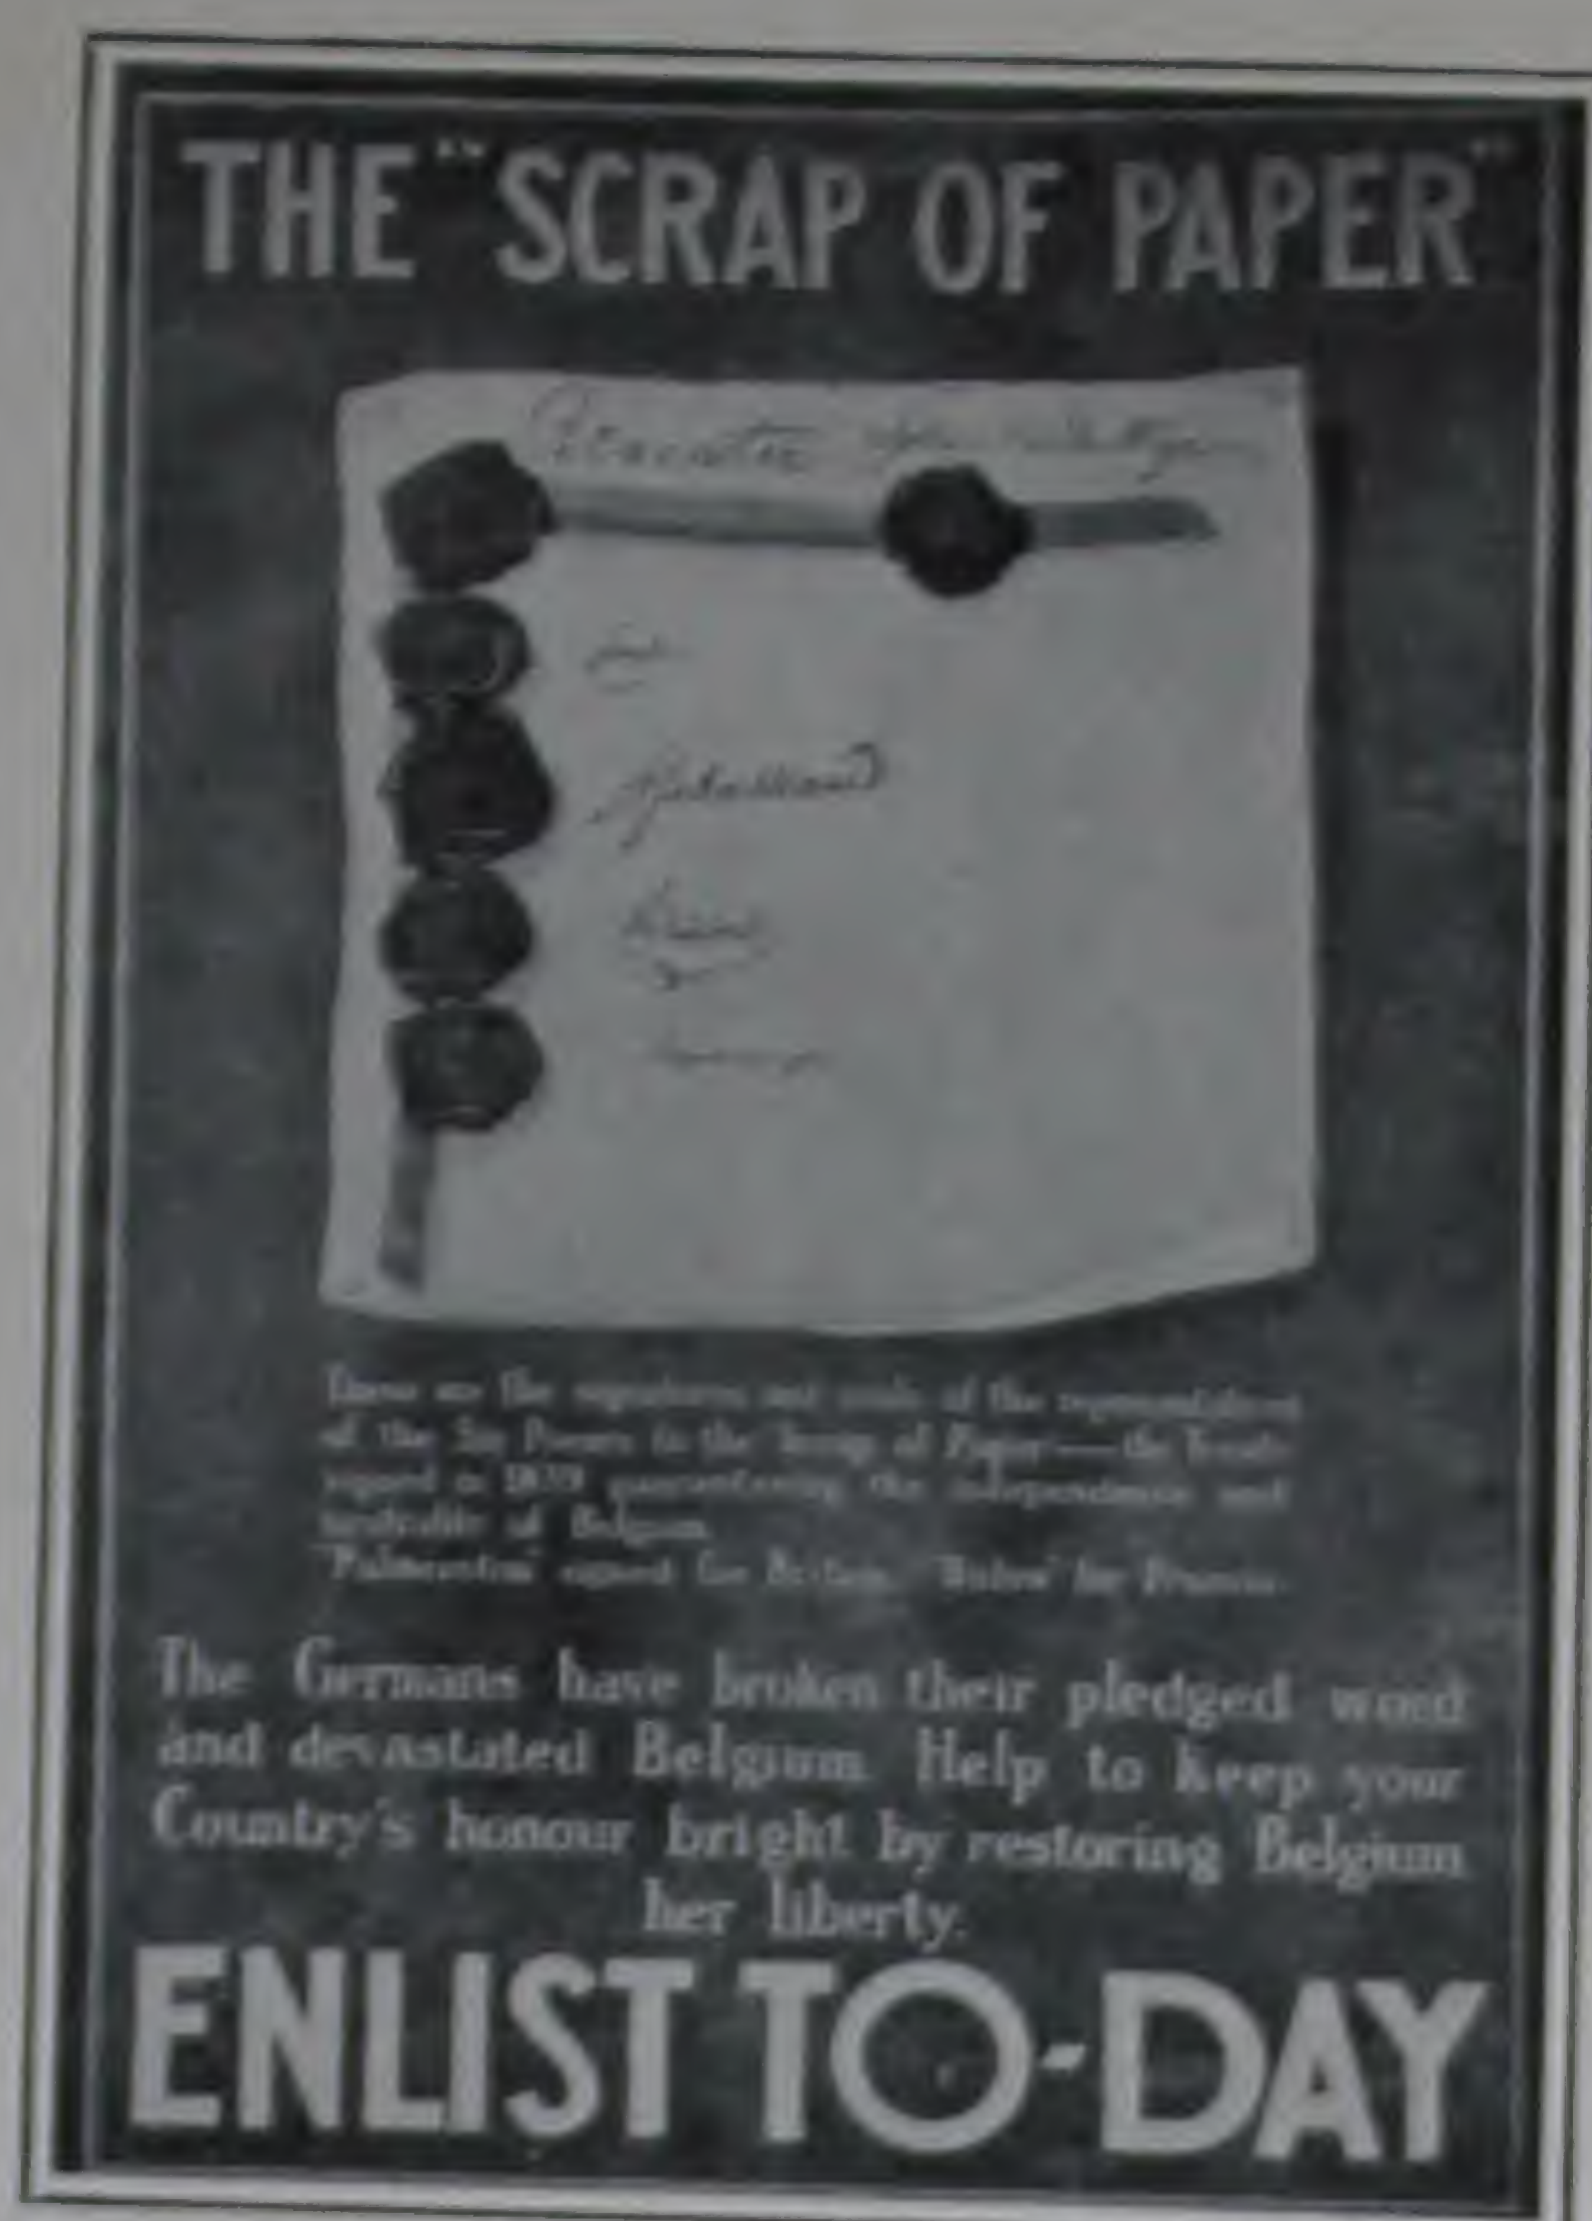 THE "SCRAP OF PAPER"
These are the signatures and seals of the representatives
of the Six Powers to the 'Scrap of Paper'—the Treaty
signed in 1839 guaranteeing the independence and
neutrality of Belgium.
'Palmerston' signed for Britain, 'Bulow' for Prussia.
The Germans have broken their pledged word
and devastated Belgium. Help to keep your
Country's honour bright by restoring Belgium
her liberty.
ENLIST TO-DAY